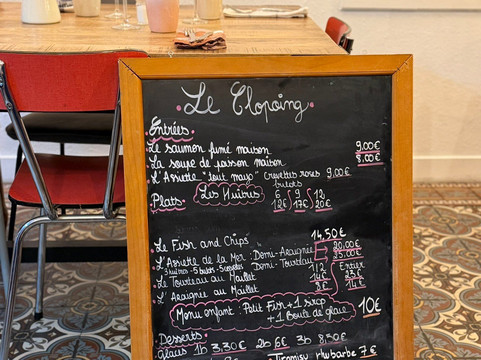 Le Clopoing
Entrées
Le saumon fumé maison 9.00€
La soupe de poisson maison 8.00€
L'Assiette "tout mayo" Crevettes roses bulots 9.00€
Plats Les Huîtres 6 9 12
12€ 17€ 20€
14.50€
Le Fish and Chips
L'Assiette de la Mer : Demi-Araignée 20.00€
Demi-Tourteau 25.00€
Le Tourteau au Maillet 1/2 14€ Entier 23€
L'Araignée au Maillet 9€ 14€
Menu enfant : Petit Fish + 1 sirop
+ 1 Boule de glace 10€
Desserts
Glaces 1b 3.30€ 2b 6€ 3b 8.30€
Tiramisu rhubarbe 7€